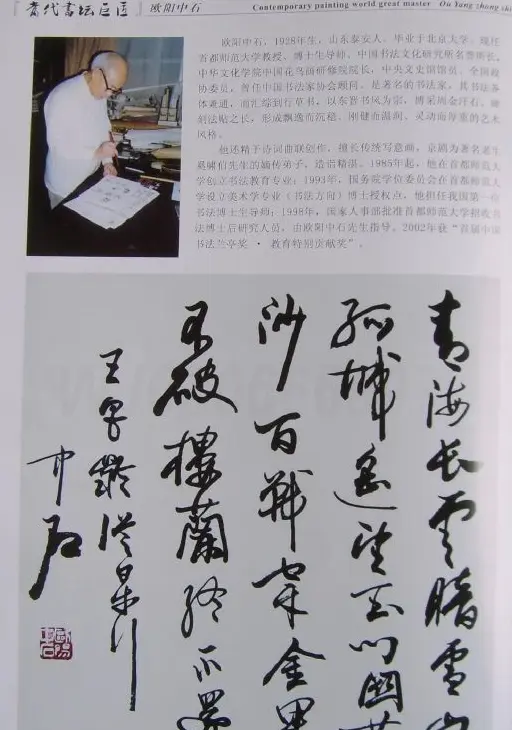 当代书坛巨匠 欧阳中石 Contemporary painting world great master Ou Yang zhong shi
欧阳中石，1928年生，山东泰安人。毕业于北京大学。现任
首都师范大学教授、博士生导师、中国书法文化研究所名誉所长，
中华文化学院中国花鸟画研修院院长，中央文史馆馆员、全国政
协委员，曾任中国书法家协会顾问。是著名的书法家，其书法各
体兼通，而汇综到行草书，以东晋书风为宗，博采周金汗石、碑
刻法帖之长，形成飘逸而沉稳、刚健而温润、灵动而厚重的艺术
风格。
他还精于诗词曲联创作，擅长传统写意画，京剧为著名老生
奚啸伯先生的嫡传弟子，造诣精湛。1985年起，他在首都师范大
学创立书法教育专业；1993年，国务院学位委员会在首都师范大
学设立美术学专业（书法方向）博士授权点，他担任我国第一位
书法博士生导师；1998年，国家人事部批准首都师范大学招收书
法博士后研究人员，由欧阳中石先生指导。2002年获“首届中国
书法兰亭奖·教育特别贡献奖”。
青海长云暗雪山
孤城遥望玉门関黄
沙百战穿金甲
不破楼兰终不还
王昌龄从军行
中石